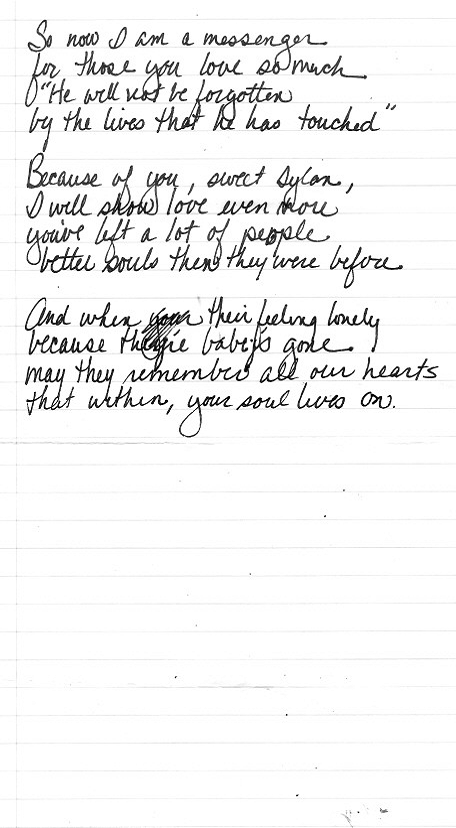 So now I am a messenger
for those you love so much
"He will not be forgotten
by the lives that he has touched"
Because of you, sweet Dylan,
I will show love even more
you've left a lot of people
better souls then they were before
And when their feeling lonely
because their baby's gone
may they remember all our hearts
that within, your soul lives on.